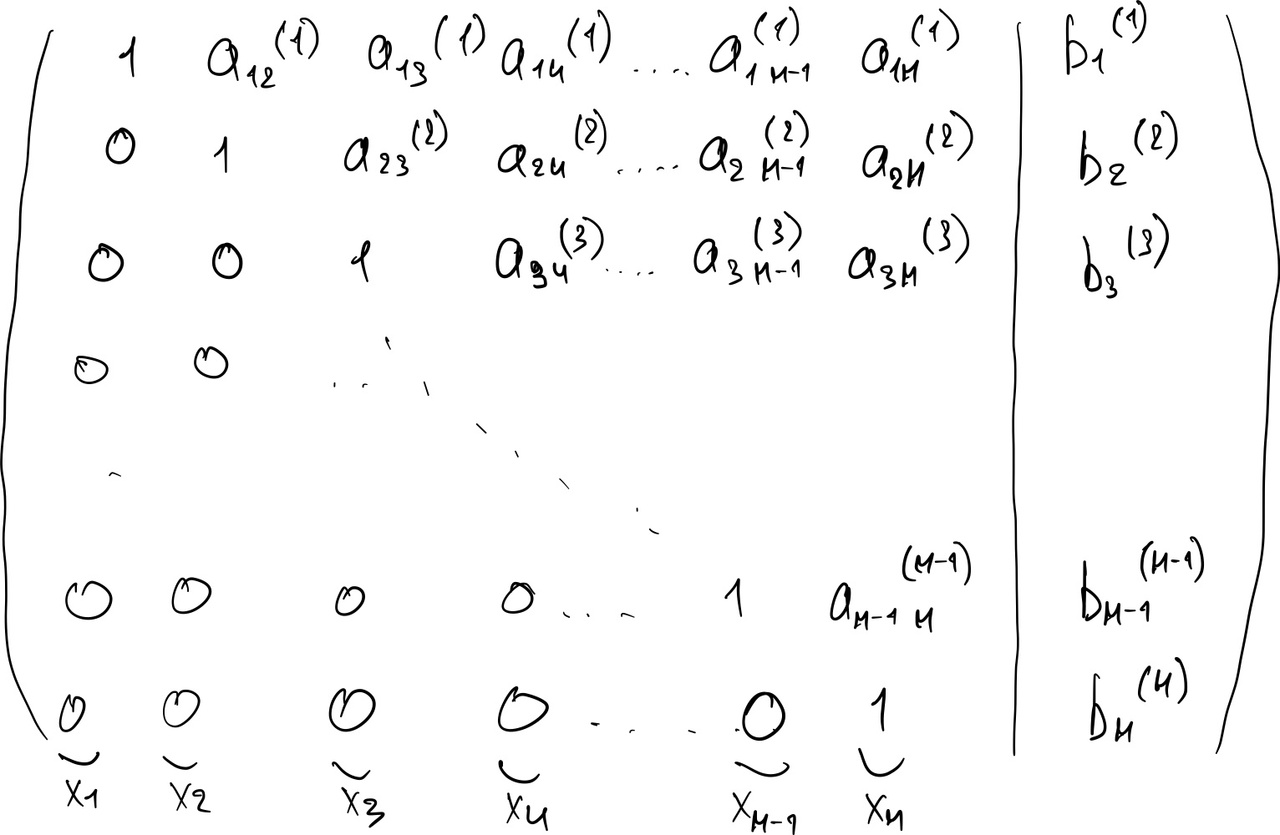 1 a₁₂⁽¹⁾ a₁₃⁽¹⁾ a₁₄⁽¹⁾ .... a₁ ₙ₋₁⁽¹⁾ a₁ₙ⁽¹⁾ | b₁⁽¹⁾
0 1 a₂₃⁽²⁾ a₂₄⁽²⁾ ..... a₂ ₙ₋₁⁽²⁾ a₂ₙ⁽²⁾ | b₂⁽²⁾
0 0 1 a₃₄⁽³⁾ ..... a₃ ₙ₋₁⁽³⁾ a₃ₙ⁽³⁾ | b₃⁽³⁾
0 0 ...
0 0 0 0 ... 1 aₙ₋₁ ₙ⁽ⁿ⁻¹⁾ | bₙ₋₁⁽ⁿ⁻¹⁾
0 0 0 0 .... 0 1 | bₙ⁽ⁿ⁾
x₁ x₂ x₃ x₄ xₙ₋₁ xₙ